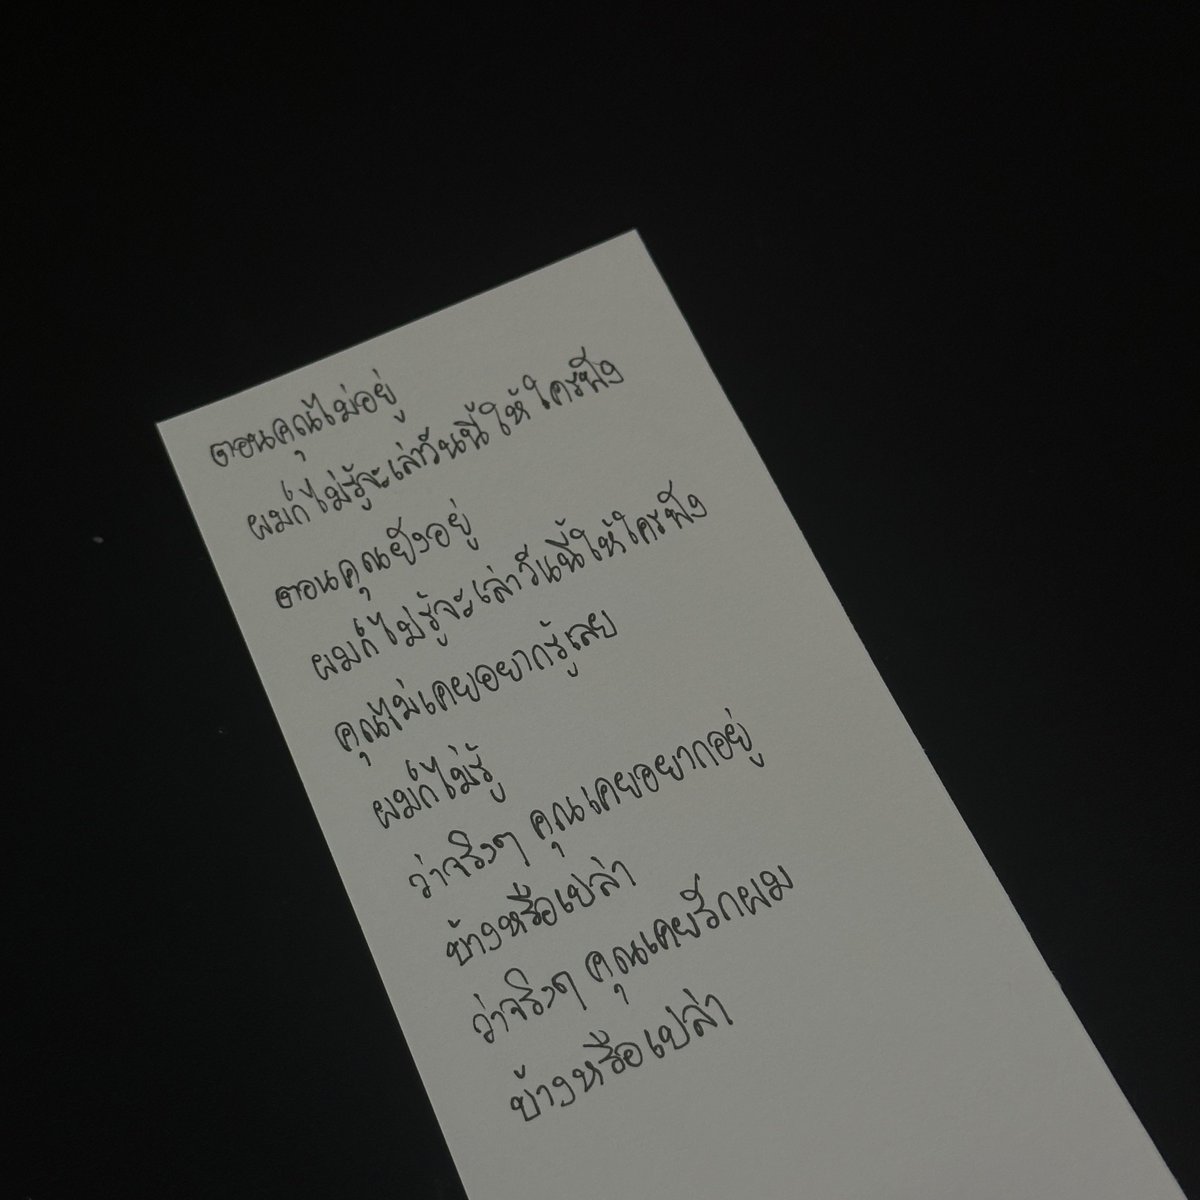 ตอนคุณไม่อยู่
ผมก็ไม่รู้จะเล่าวันนี้ให้ใครฟัง
ตอนคุณยังอยู่
ผมก็ไม่รู้จะเล่าวันนี้ให้ใครฟัง
คุณไม่เคยอยากรู้เลย
ผมก็ไม่รู้
ว่าจริงๆ คุณเคยอยากอยู่
บ้างหรือเปล่า
ว่าจริงๆ คุณเคยรักผม
บ้างหรือเปล่า